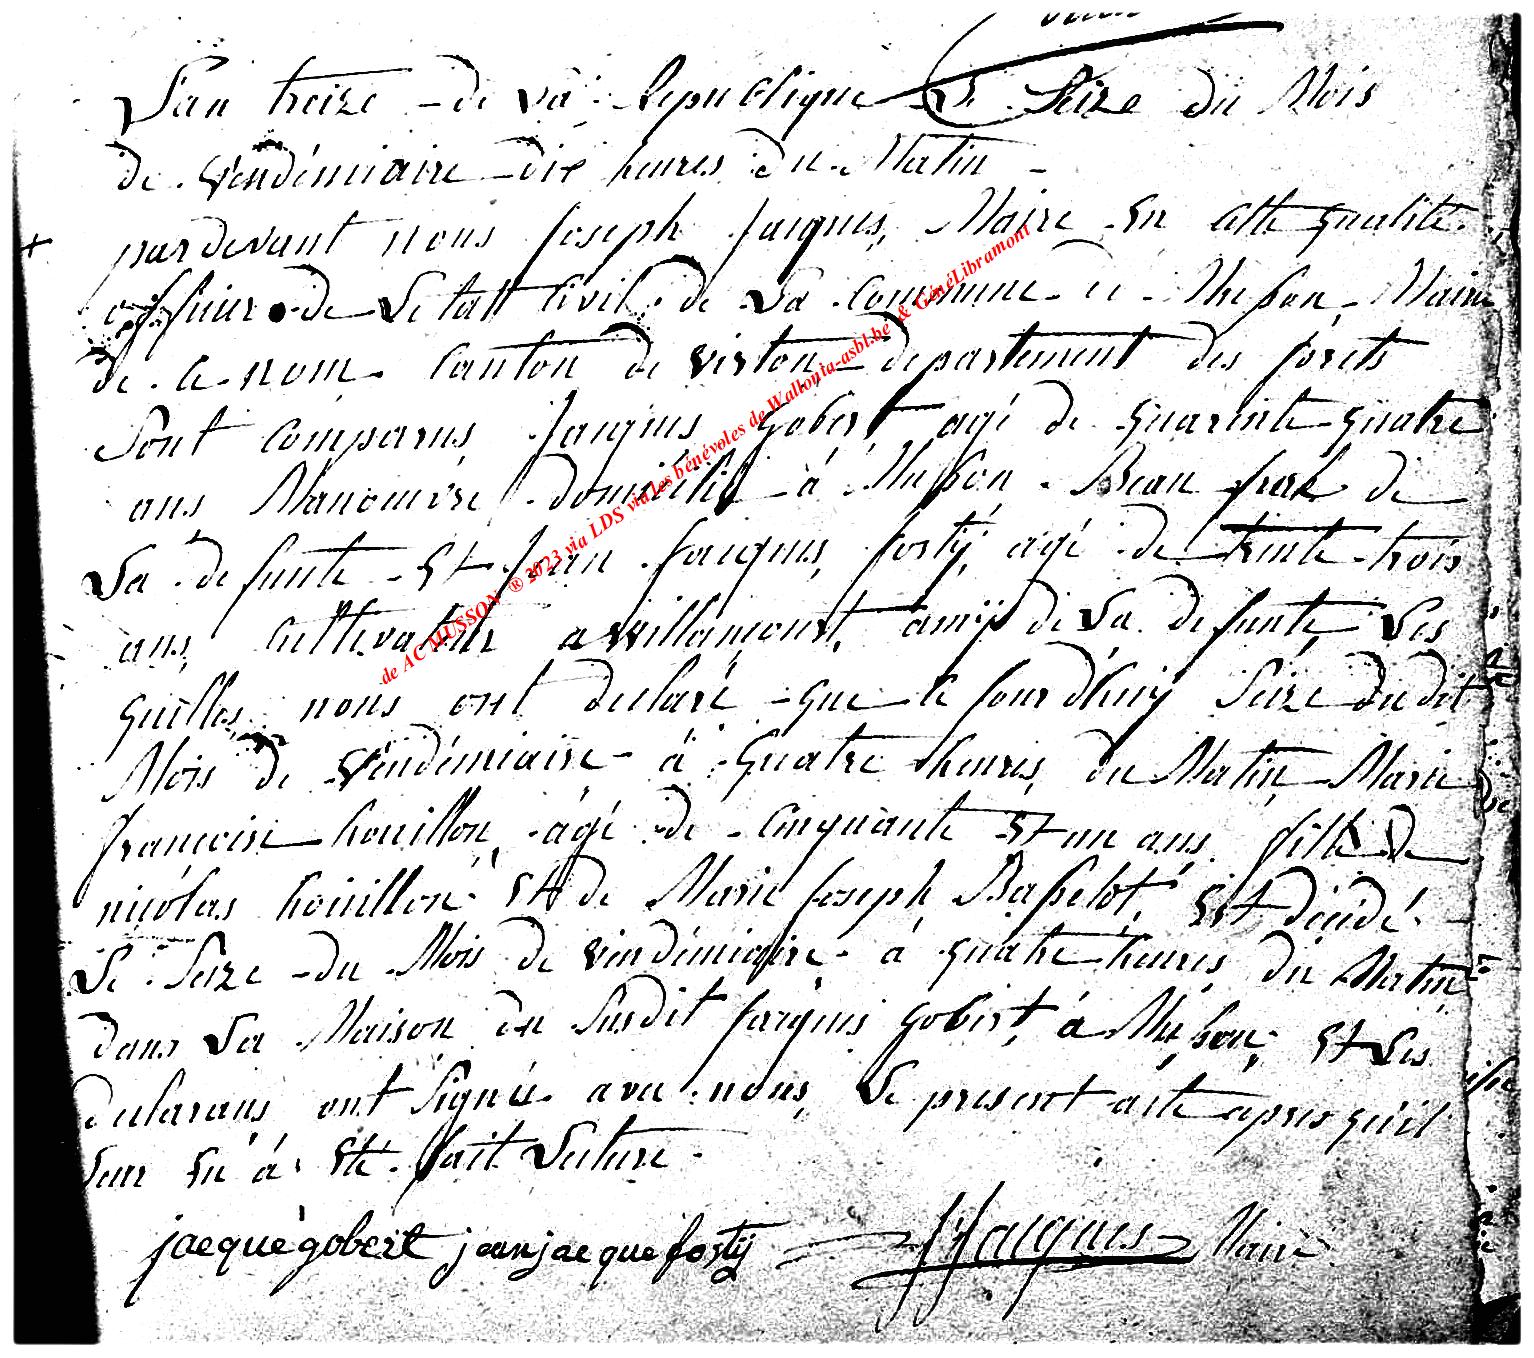 L'an treize de La Republique Le Seize du Mois
de Vendémiaire dix heures du Matin
pardevant nous Joseph Jacques, Maire En cette qualité
officier de L'etatt Civil de La Commune de Musson, Mairie
de ce nom Canton de virton departement des forets
Sont comparus Jacques Gobert agé de quarente quatre
ans Manouvré domicilié à Musson Beau frert de
La defunte Et Jean Jacques, forty, agé de trente trois
ans, Culttivateur a willancourt, amÿ de La defunte, Les
quelles nous ont declaré que ce Jourdhuÿ Seize du dit
Mois de Vendémiaire à Quatre heures du Matin Marie
francoise houillon, âgé de Cinquante Et un ans, fille de
nicolas houillon Et de Marie Joseph Basselot, Est décédé
Le Seize du Mois de vendémiaire à quatre heures du Matin
dans La Maison du Susdit Jacques Gobert, à Musson, Et Les
declarans ont Signés avec nous, Le present acte apres qu'il
Leur En à Eté fait Lecture
jacque gobert jean jacque fortÿ JJacques Maire
de AC MUSSON ® 2023 via LDS via les bénévoles de Wallonia-asbl.be & GénéLibramont